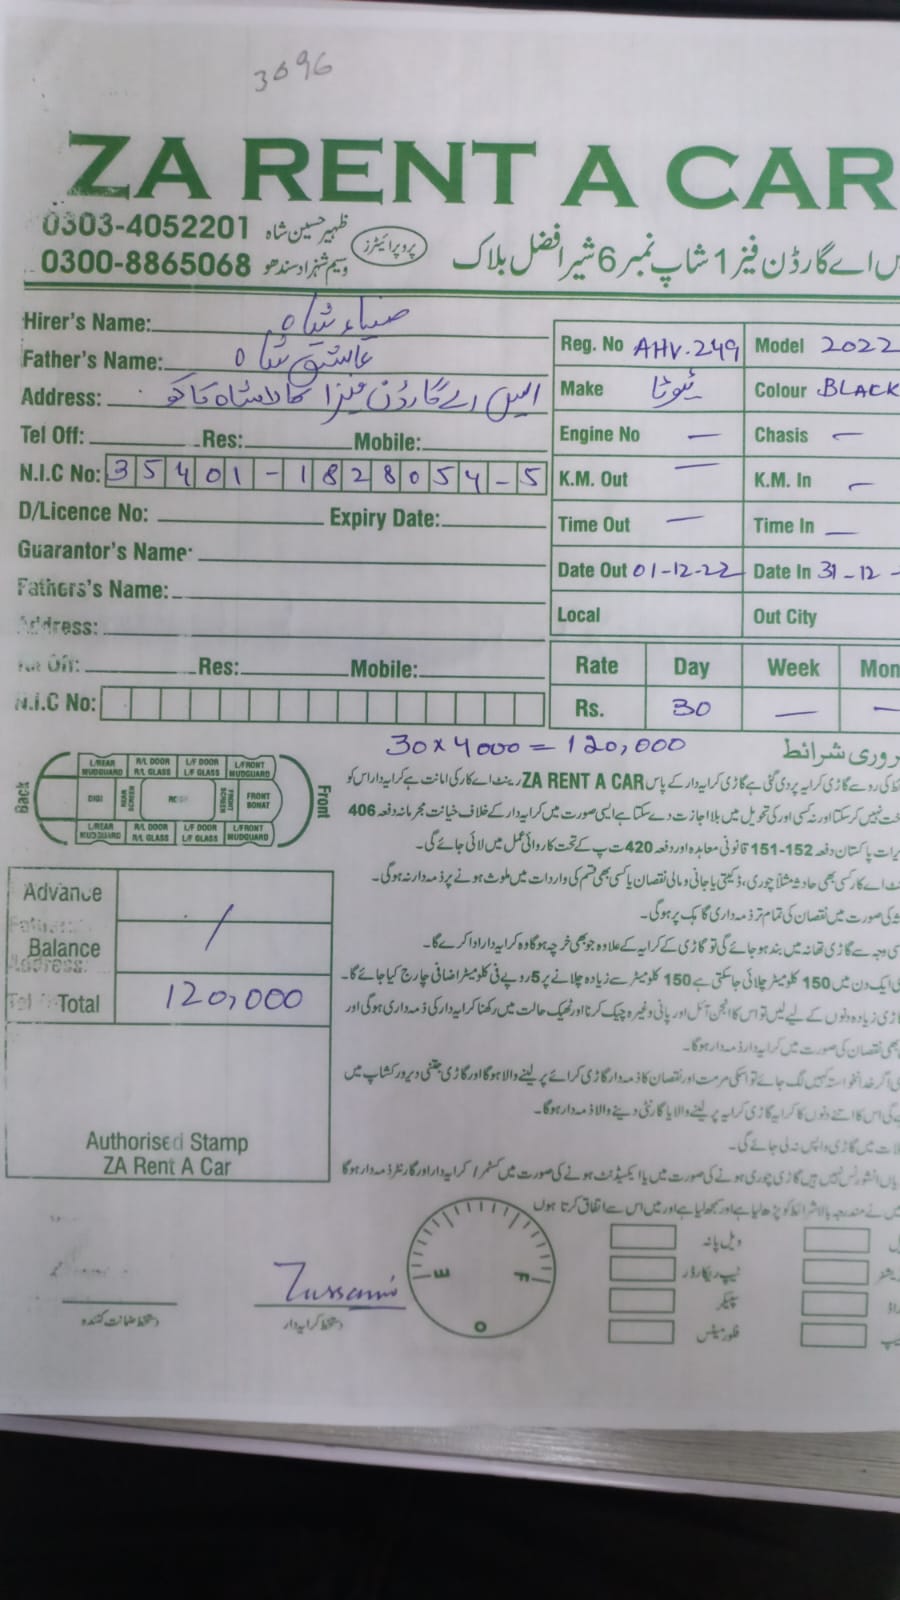 3096
ZA RENT A CAR
0303-4052201 ظہیر حسین شاہ
0300-8865068 وسیم شہزاد سندھو
پروپرائیٹرز
اے گارڈن فیز 1 شاپ نمبر 6 شیر افضل بلاک
Hirer's Name: ضیاء شاہ
Father's Name: عاشق شاہ
Address: ایس اے گارڈن فیز 1 کالا شاہ کاکو
Tel Off: Res: Mobile:
N.I.C No: 35401-1828054-5
D/Licence No: Expiry Date:
Guarantor's Name:
Fathers's Name:
Address:
Tel Off: Res: Mobile:
N.I.C No:
Reg. No AHV.249 Model 2022
Make ٹیوٹا Colour BLACK
Engine No — Chasis —
K.M. Out — K.M. In —
Time Out — Time In —
Date Out 01-12-22 Date In 31-12-
Local Out City
Rate Day Week Mon
Rs. 30 — —
30 x 4000 = 120,000
ضروری شرائط
Back
L/REAR MUDGUARD R/L DOOR R/L GLASS L/F DOOR L/F GLASS L/FRONT MUDGUARD
DIGI FRONT SCREEN FRONT BONAT
L/REAR MUDGUARD R/L DOOR R/L GLASS L/F DOOR L/F GLASS L/FRONT MUDGUARD
Front
کی رو سے گاڑی کرایہ پر دی گئی ہے گاڑی کرایہ دار کے پاس ZA RENT A CAR رینٹ اے کار کی امانت ہے کرایہ دار اس کو
نہیں کر سکتا اور نہ کسی اور کی تحویل میں بلا اجازت دے سکتا ہے ایسی صورت میں کرایہ دار کے خلاف خیانت مجرمانہ دفعہ 406
پاکستان دفعہ 152-151 قانونی معاہدہ اور دفعہ 420 ت پ کے تحت کاروائی عمل میں لائی جائے گی۔
اے کار کسی بھی حادثہ مثلاً چوری، ڈکیتی یا جانی و مالی نقصان یا کسی بھی قسم کی واردات میں ملوث ہونے پر ذمہ دار نہ ہوگی۔
کی صورت میں نقصان کی تمام تر ذمہ داری گاہک پر ہوگی۔
وجہ سے گاڑی تھانہ میں بند ہو جائے گی تو گاڑی کے کرایہ کے علاوہ جو بھی خرچہ ہوگا وہ کرایہ دار ادا کرے گا۔
ایک دن میں 150 کلومیٹر چلائی جا سکتی ہے 150 کلومیٹر سے زیادہ چلانے پر 5 روپے فی کلومیٹر اضافی چارج کیا جائے گا۔
زیادہ دنوں کے لیے لیں تو اس کا انجن آئل اور پانی وغیرہ چیک کرنا اور ٹھیک حالت میں رکھنا کرایہ دار کی ذمہ داری ہوگی اور
بھی نقصان کی صورت میں کرایہ دار ذمہ دار ہوگا۔
اگر خدانخواستہ کہیں لگ جائے تو اسکی مرمت اور نقصان کا ذمہ دار گاڑی کرائے پر لینے والا ہوگا اور گاڑی جتنی دیر ورکشاپ میں
گی اس کا اتنے دنوں کا کرایہ گاڑی کرایہ پر لینے والا یا گارنٹی دینے والا ذمہ دار ہوگا۔
میں گاڑی واپس نہ لی جائے گی۔
انشورنس نہیں ہیں گاڑی چوری ہونے کی صورت میں یا ایکسیڈنٹ ہونے کی صورت میں کسٹمر / کرایہ دار اور گارنٹر ذمہ دار ہوگا
میں نے مندرجہ بالا شرائط کو پڑھ لیا ہے اور سمجھ لیا ہے اور میں اس سے اتفاق کرتا ہوں
Advance
Balance /
Total 120,000
Authorised Stamp
ZA Rent A Car
دستخط ضمانت کنندہ
دستخط کرایہ دار
E F O
ویل پانہ
ٹیپ ریکارڈر
سپیکر
فلور میٹس